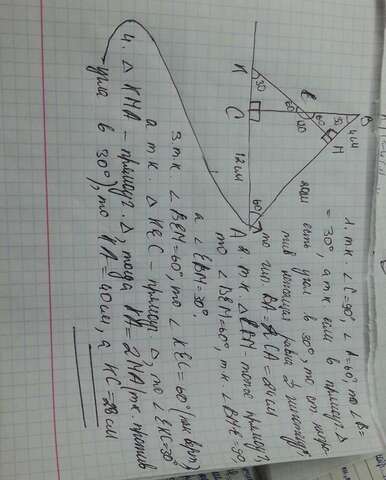 B
30
4 см
M
E
60
60
120
30
60
K
C
12 см
A
1. т.к. ∠C = 90°, ∠A = 60°, то ∠B =
= 30°, а т.к. если в прямоуг. Δ
есть угол в 30°, то ст. напро-
тив лежащая равна ½ гипотенузы
то гип. BA = 2CA = 24 см
2. т.к. ΔBEM - тоже прямоуг.
то ∠BEM = 60°, т.к. ∠BME = 90
а ∠EBM = 30°.
3. т.к. ∠BEM = 60°, то ∠KEC = 60° (как верт)
а т.к. ΔKEC - прямоуг. Δ, то ∠EKC = 30°
4. ΔKMA - прямоуг. Δ, тогда KA = 2MA (т.к. против
угла в 30°), то KA = 40 см, а KC = 28 см